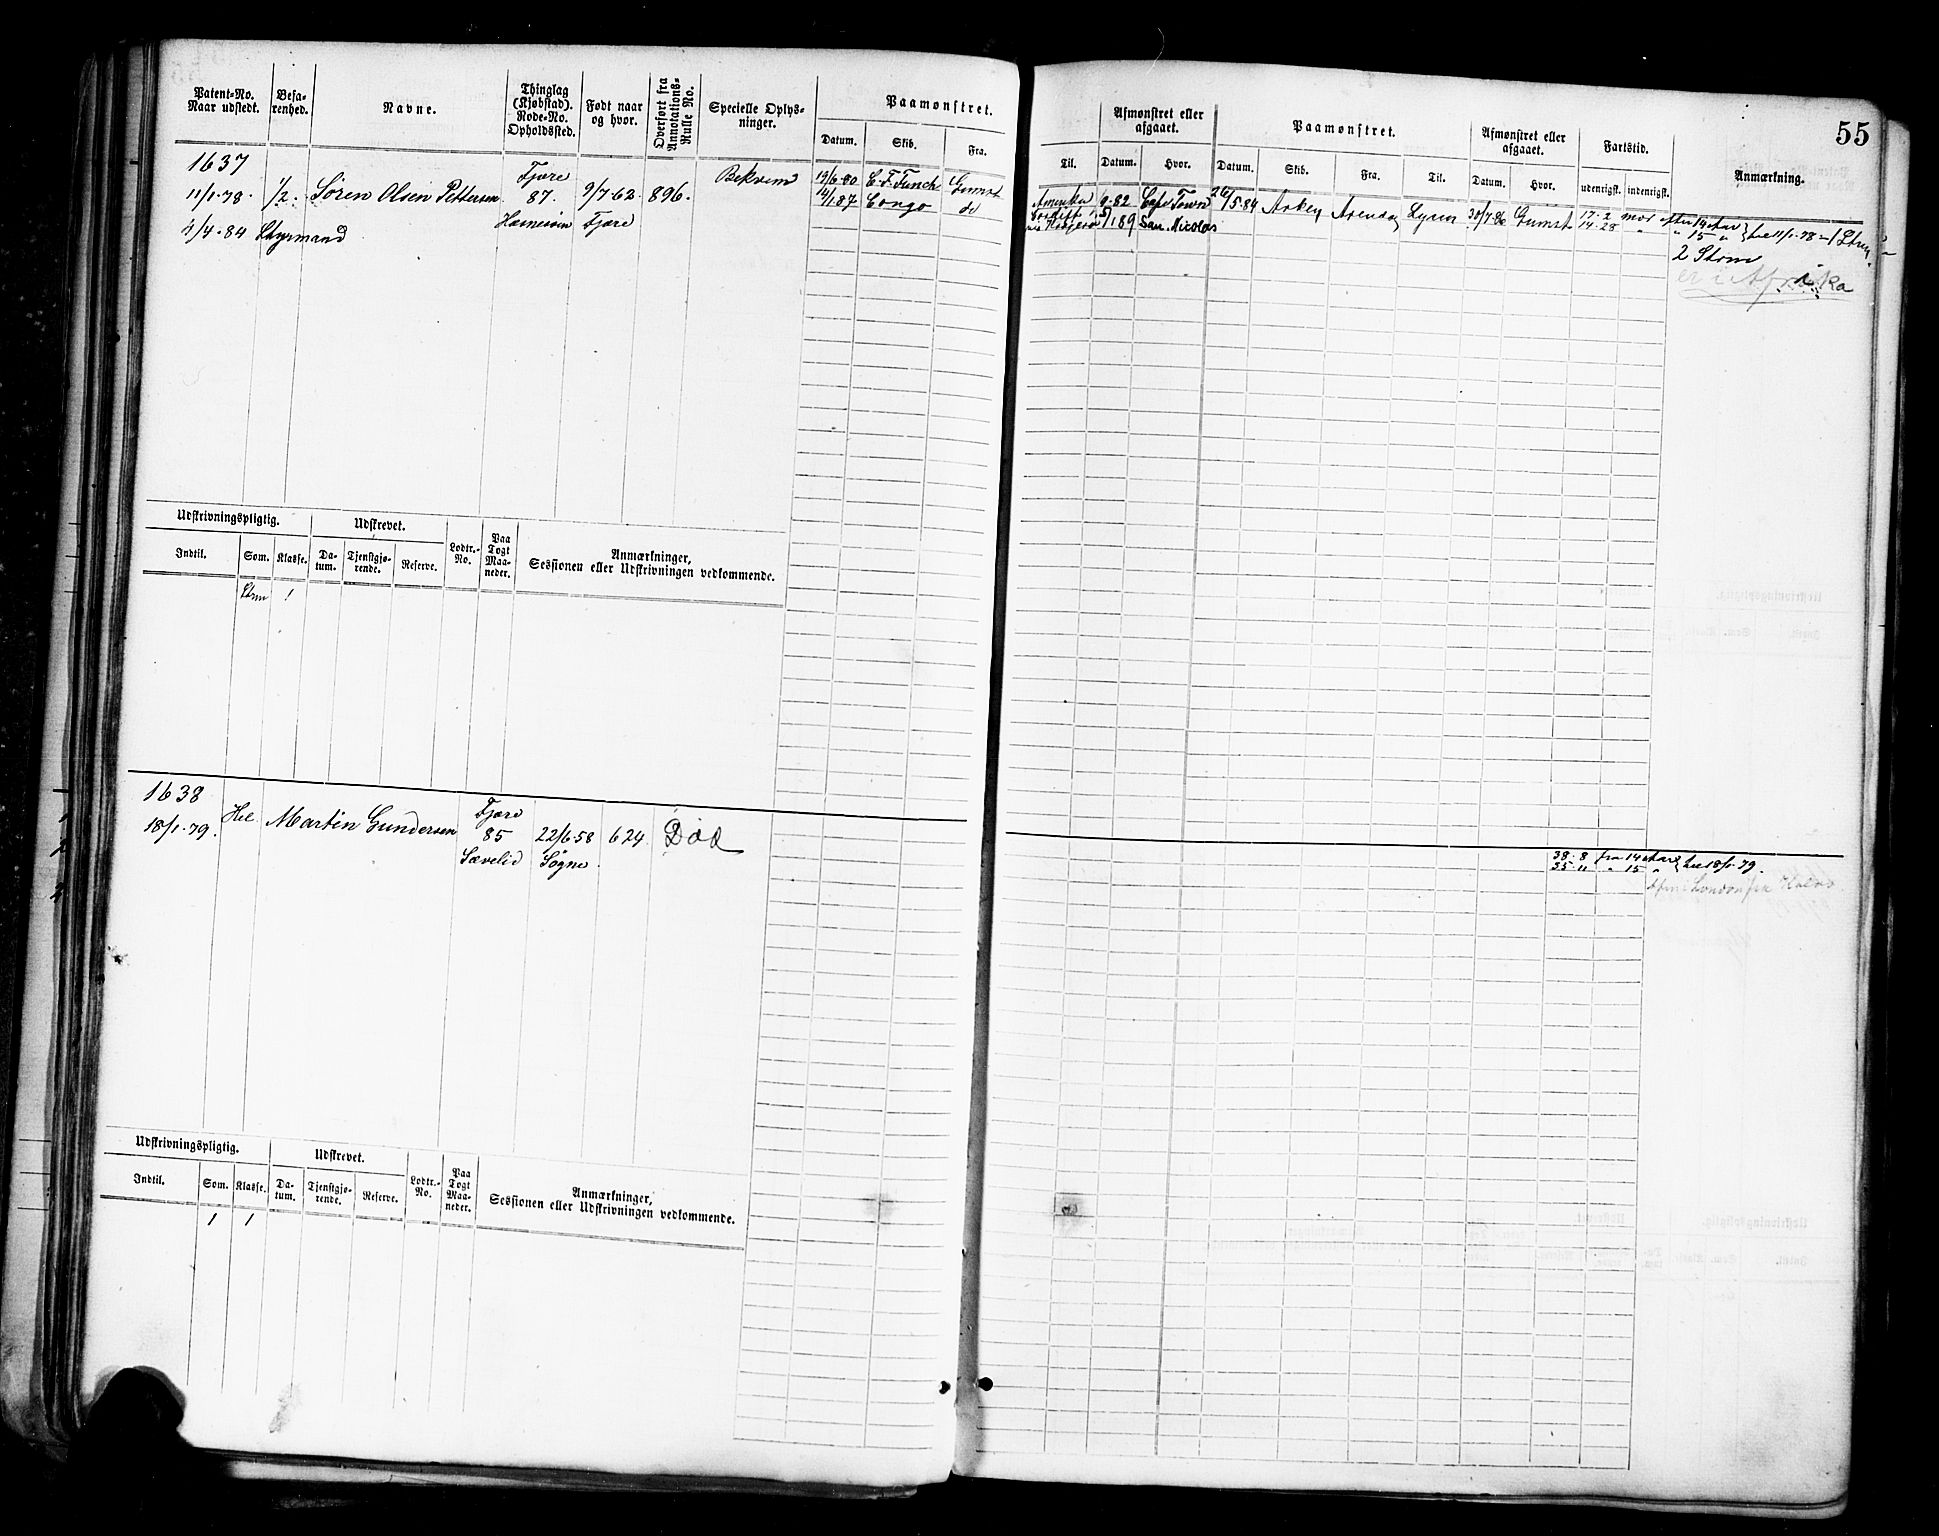 55
Patent-No. Naar udstedt.
Befarenhed.
Navne.
Thinglag (Kjøbstad). Rode-No. Opholdssted.
Født naar og hvor.
Overført fra Annotations-Rulle No.
Specielle Oplysninger.
Paamønstret.
Datum. Skib. Fra.
Til.
Afmønstret eller afgaaet.
Datum. Hvor.
Paamønstret.
Datum. Skib. Fra. Til.
Afmønstret eller afgaaet.
Datum. Hvor.
Fartstid.
udenrigst. indenrigst.
Anmærkning.
1637
11/1-78. 1/2. Søren Olsen Pettersen
4/4-84 Styrmand
Fjære
87.
9/7-62
Fjære
896.
Bekvem
19/6-80 C. F. Funch Grmst
Congo do
Amerika 9-82 Cape Town
189 San Nicolas
26/5-84
30/7-86 Grmst
17-2
14-28
2 Strm
er i Afrika
Udskrivningspligtig.
Indtil. Som. Klasse.
Udskrevet.
Datum. Tjenstgjørende. Reserve.
Lodtr.-No.
Paa Togt Maaneder.
Anmærkninger,
Sessionen eller Udskrivningen vedkommende.
Strm 1
1638
18/1-79.
Hel. Martin Gundersen
Fjære
85
Sævelid
22/6-58
Søgne
624
Død
38-8 fra 14 Aar
35-11 " 15 "
til 18/1-79.
Udskrivningspligtig.
Indtil. Som. Klasse.
Udskrevet.
Datum. Tjenstgjørende. Reserve.
Lodtr.-No.
Paa Togt Maaneder.
Anmærkninger,
Sessionen eller Udskrivningen vedkommende.
1 1